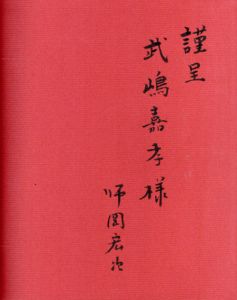 謹呈
武嶋嘉孝様
師岡宏次